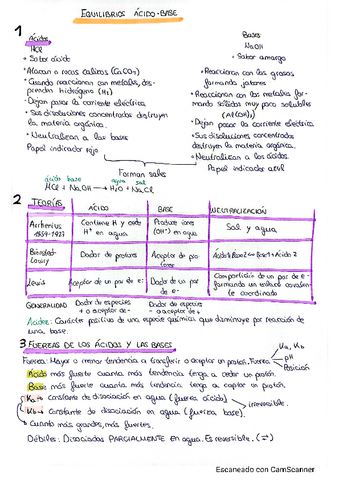 EQUILIBRIOS ÁCIDO-BASE
1
Ácidos
HCl
• Sabor ácido
• Atacan a rocas calizas (CaCO₃)
• Cuando reaccionan con metales, des-
prenden hidrógeno (H₂)
• Dejan pasar la corriente eléctrica
• Sus disoluciones concentradas destruyen
la materia orgánica.
• Neutralizan a las bases
Papel indicador rojo
Bases
NaOH
• Sabor amargo
• Reaccionan con las grasas
formando jabones
• Reaccionan con los metales for-
mando sólidos muy poco solubles
(Al(OH)₃)
• Dejan pasar la corriente eléctrica.
• Sus disoluciones concentradas
destruyen la materia orgánica.
• Neutralizan a los ácidos.
Papel indicador azul
Forman sales
ácido base agua sal
HCl + NaOH → H₂O + NaCl
2 TEORÍAS
ÁCIDO BASE NEUTRALIZACIÓN
Arrhenius
1859-1927
Contiene H y cede
H⁺ en agua
Produce iones
(OH⁻) en agua
Sal y agua
Brönsted-
Lowry
Dador de protones
Aceptor de pro-
tones
Ácido1+Base2⇌Base1+Ácido2
Lewis
Aceptor de un par de e⁻
Dador de un par
de e⁻
Compartición de un par de e⁻
formando un enlace covalen-
te coordinado
GENERALIDAD
Dador de especies
+ o aceptor de -
Dador de especies
- o aceptor de +
Acidez: Carácter positivo de una especie química que disminuye por reacción de
una base.
3 FUERZAS DE LOS ÁCIDOS Y LAS BASES
Fuerza: Mayor o menor tendencia a transferir o aceptar un protón. Fuerza
Ka, Kb
pH
Posición
Ácido más fuerte cuanta más tendencia tenga a ceder un protón.
Base más fuerte cuanta más tendencia tenga a captar un protón.
Ka → constante de disociación en agua (fuerza ácido)
Kb → constante de disociación en agua (fuerza base).
Irreversible.
→ Cuanto más grandes, más fuertes.
Débiles: Disociadas PARCIALMENTE en agua. Es reversible. (⇌)
Escaneado con CamScanner